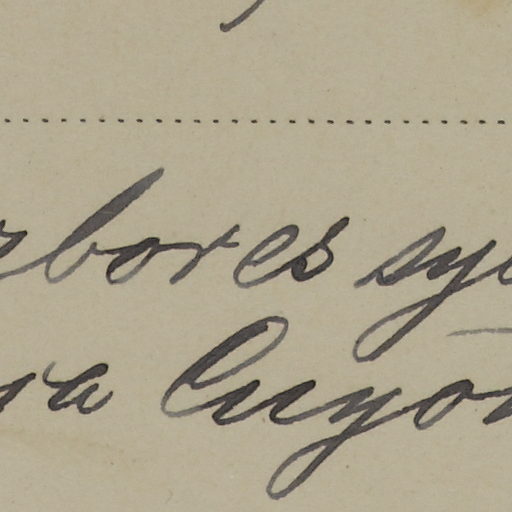 rbores sy
ra Cuyo